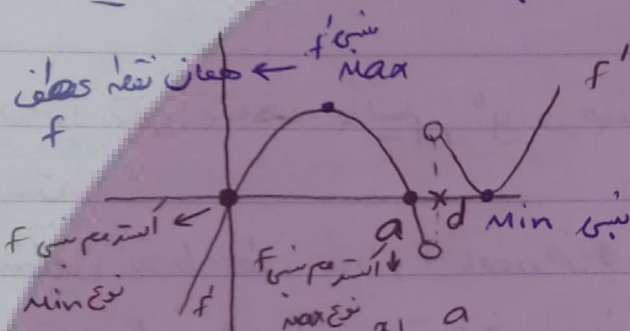 نسبی f'
Max
همان نقطه عطف ←
f
f'
d
Min نسبی
a
اکسترمم نسبی f ←
نوع Min
f'
اکسترمم نسبی f ↓
نوع Max
a